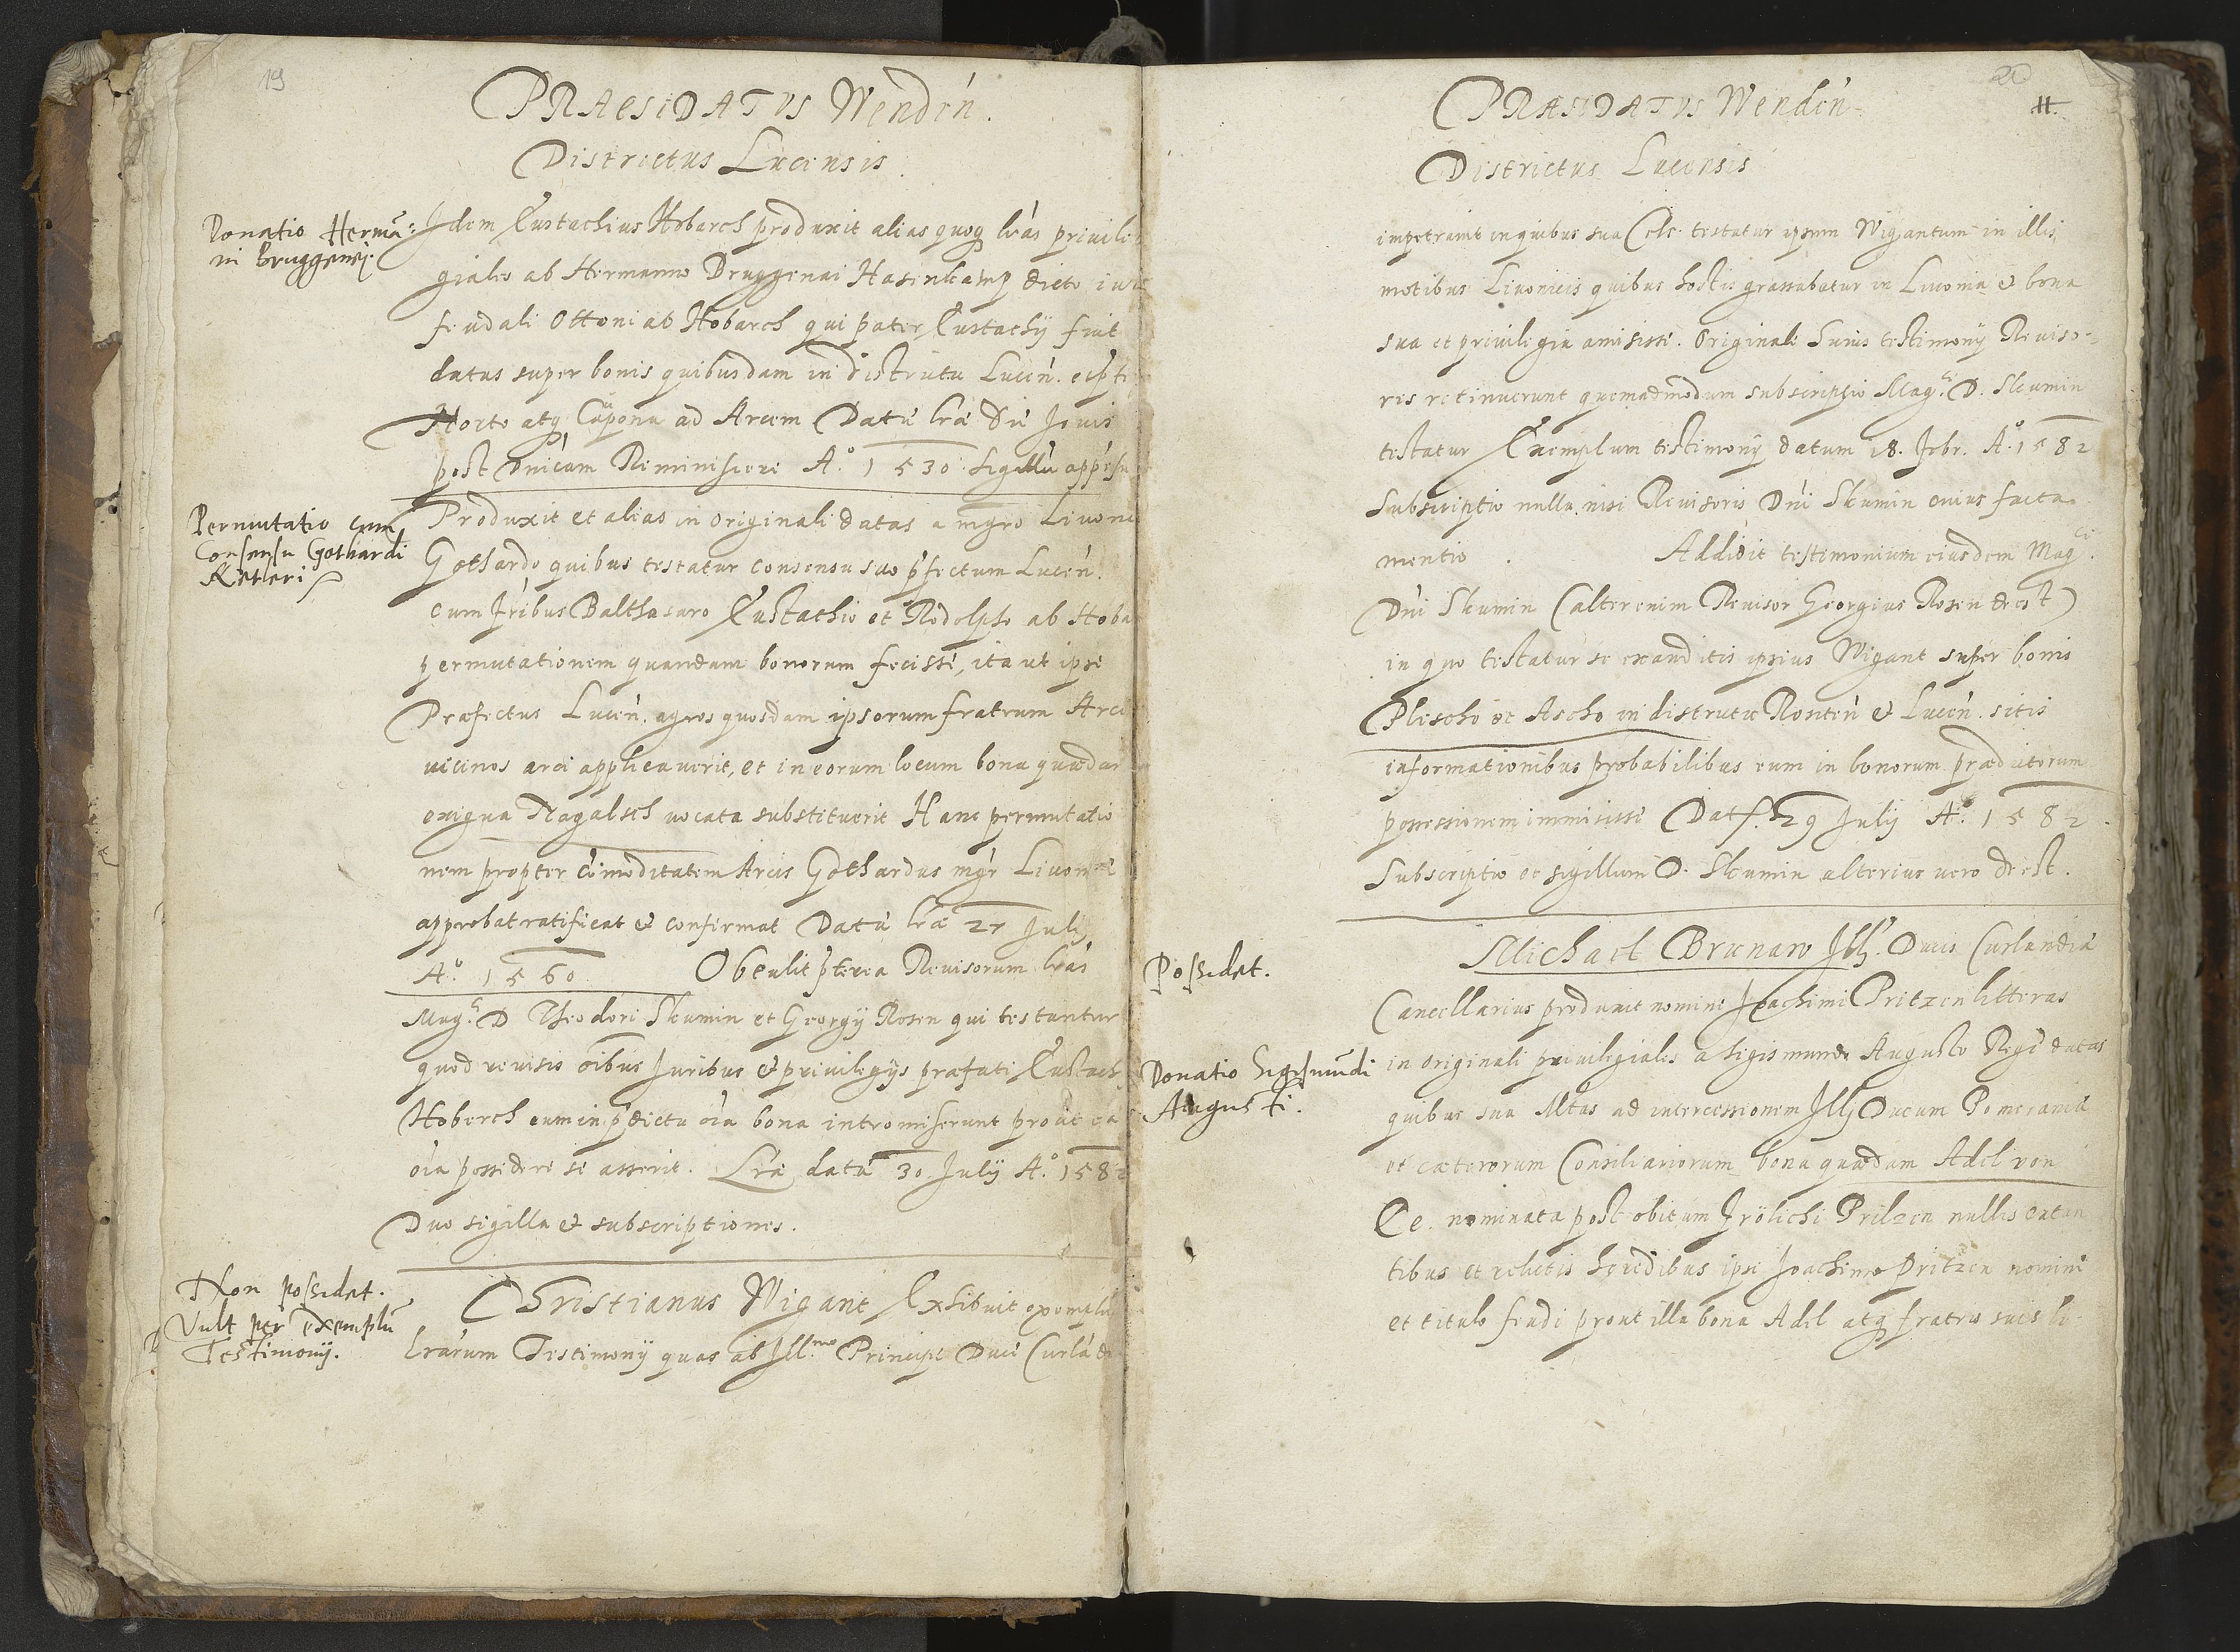 19
PRAESIDATVS Wendeń.
Districtus Lucensis.
Donatio Hermā:
ni Bruggenej.
Idem Eustachius Hobarch produxit alias quoq lrás priuile
giales ab Hermanno Bruggenai Hasenkamp dicto iure
feudali Ottoni ab Hobarch qui pater Eustachij fuit
datas super bonis quibusdam in districtu Luceń.
Horto atq ad Arcem Datæ lræ Die Jouis
post Dnicam Reminiscere A.º 1530 Sigillū appēsu
Permutatio cum
Consensu Gothardi
Ketleri
Produxit et alias in originali datas a mgro Liuoni
Gothardo quibus testatur consensu suo pfectum Luceń.
cum fribus Balthasaro Eustachio et Rodolpho ab Hoba
permutationem quandam bonorum fecisse, ita ut ipse
Præfectus Luceń. agros quosdam ipsorum fratrum Arci
uicinos arci applicauerit, et in eorum locum bona quædam
exigua Nagalsch uocata substituerit Hanc permutatio
nem propter cōmoditatem Arcis Gothardus mgr Liuoniæ
approbat ratificat & confirmat Datæ lræ 27 Julij
A.º 1560 Obtulit pterea Reuisorum lrás
Mag. D Theodori Skumin et Georgij Rosen qui testantur
quod reuisis oībus Juribus & priuilegijs præfati Eustach
Hoberch eum in pdicta oīa bona intromiserunt prout ea
oīa possidere se asserit. Lræ datæ 30 Julij A.º 1582
Duo sigilla & subscriptiones.
Non possidet.
Vult per exemplū
Testimonij.
Christianus Wigant Exhibuit exempla
lrarum Testimonij quas ab Ill.mo Principe Duce Curlādi
20
11.
PRÆSIDATVS Wendeń
Districtus Lucensis
impetrauit in quibus sua Cels: testatur ipsum Wigantum in illis
motibus Liuonicis quibus hostis grassabatur in Liuonia & bona
sua et priuilegia amisisse. Originale huius testimonij Reuiso=
res retinuerunt quemadmodum subscriptio Mag.ci D. Skumin
testatur Exemplum testimonij datum 18. A.º 1582
Subscriptio nulla nisi Reuisoris Dńi Skumin cuius facta
mentio. Addidit testimonium eiusdem Mag.ci
Dńi Skumin (alter enim Reuisor Georgius Rosen deest)
in quo testatur se exauditis ipsius Wigant super bonis
Plescho et Ascho in districtu Rositeń & Luceń. sitis
informationibus probabilibus eum in bonorum prædictorum
possessionem immisisse Dat. 29 Julij A.º 1582.
Subscriptio et sigillum D. Skumin alterius uero deest.
Possidet.
Michael Brunaw Ill. Ducis Curlandiæ
Cancellarius produxit nomine Joachimi Pritzen litteras
Donatio Sigismūdi
Augusti.
in originali priuilegiales a Sigismundo Augusto Rege datas
quibus sua Mtas ad intercessionem Ill Ducum Pomeraniæ
et cæterorum Consiliariorum bona quædam Adel von
Ee. nominata post obitum Frölichi Pritzen nullis extan
tibus et relictis hæredibus ipsi Joachimo Pritzen nomine
et titulo feudi prout illa bona Adel atq fratris suis li-